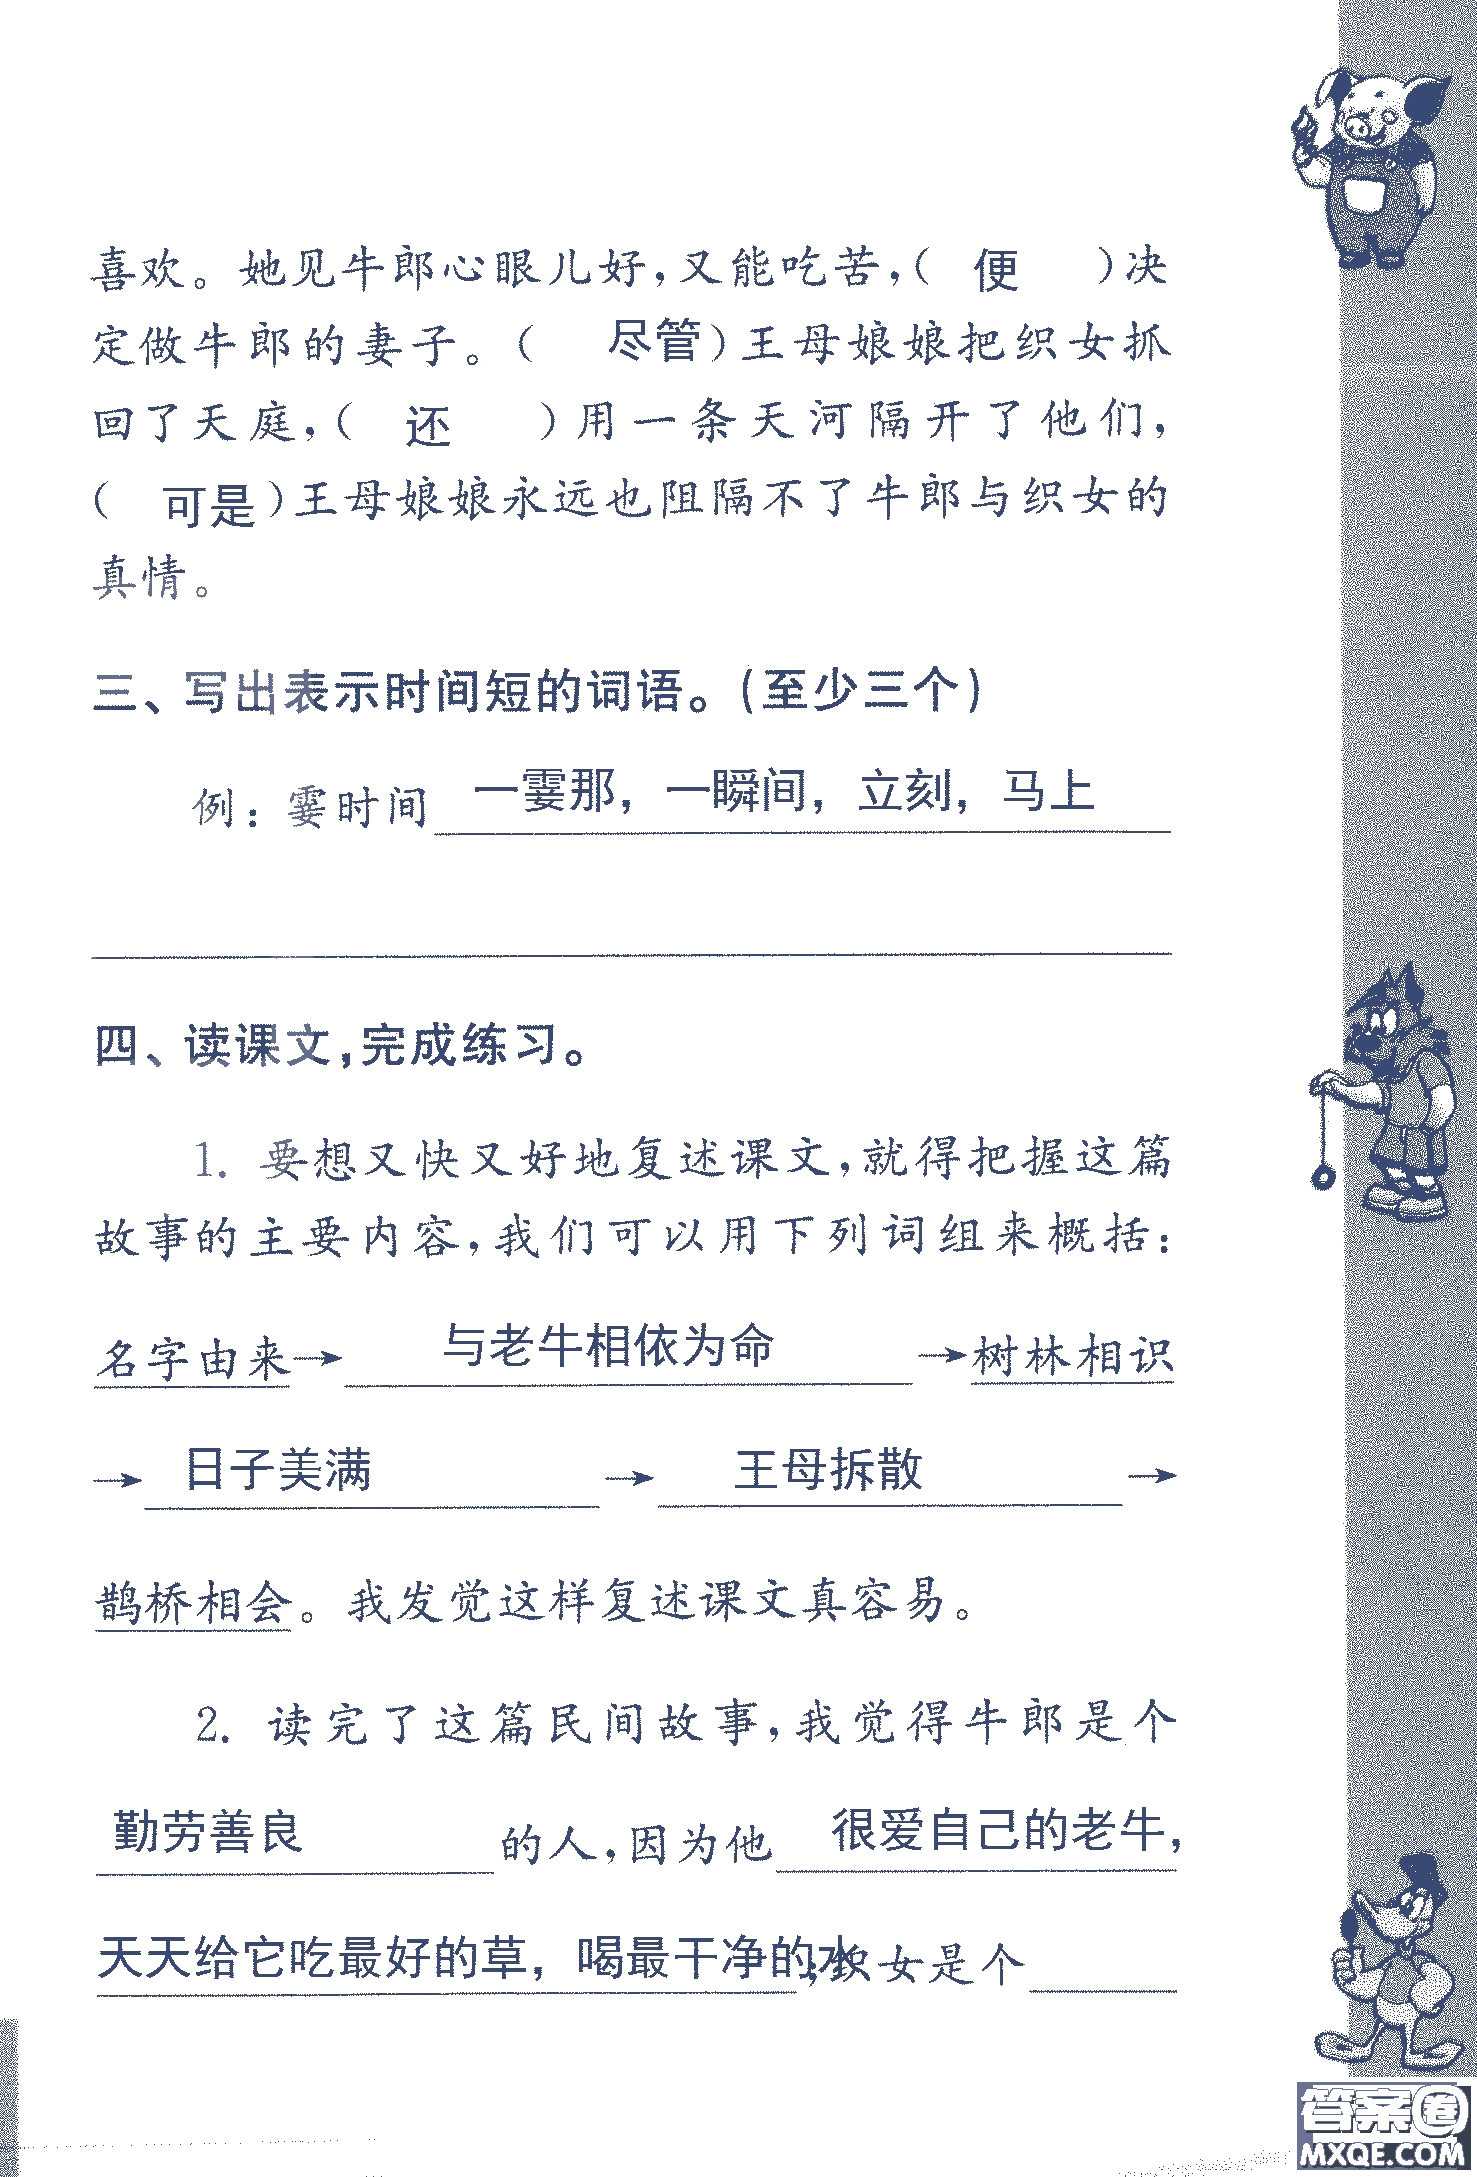 喜欢。她见牛郎心眼儿好,又能吃苦,( 便 )决
定做牛郎的妻子。( 尽管)王母娘娘把织女抓
回了天庭,( 还 )用一条天河隔开了他们,
( 可是)王母娘娘永远也阻隔不了牛郎与织女的
真情。
三、写出表示时间短的词语。(至少三个)
例：霎时间 一霎那，一瞬间，立刻，马上
四、读课文,完成练习。
1. 要想又快又好地复述课文,就得把握这篇
故事的主要内容,我们可以用下列词组来概括：
名字由来→ 与老牛相依为命 →树林相识
→ 日子美满 → 王母拆散 →
鹊桥相会。我发觉这样复述课文真容易。
2. 读完了这篇民间故事,我觉得牛郎是个
勤劳善良 的人,因为他 很爱自己的老牛，
天天给它吃最好的草，喝最干净的水 ;织女是个
答案圈
MXQE.COM